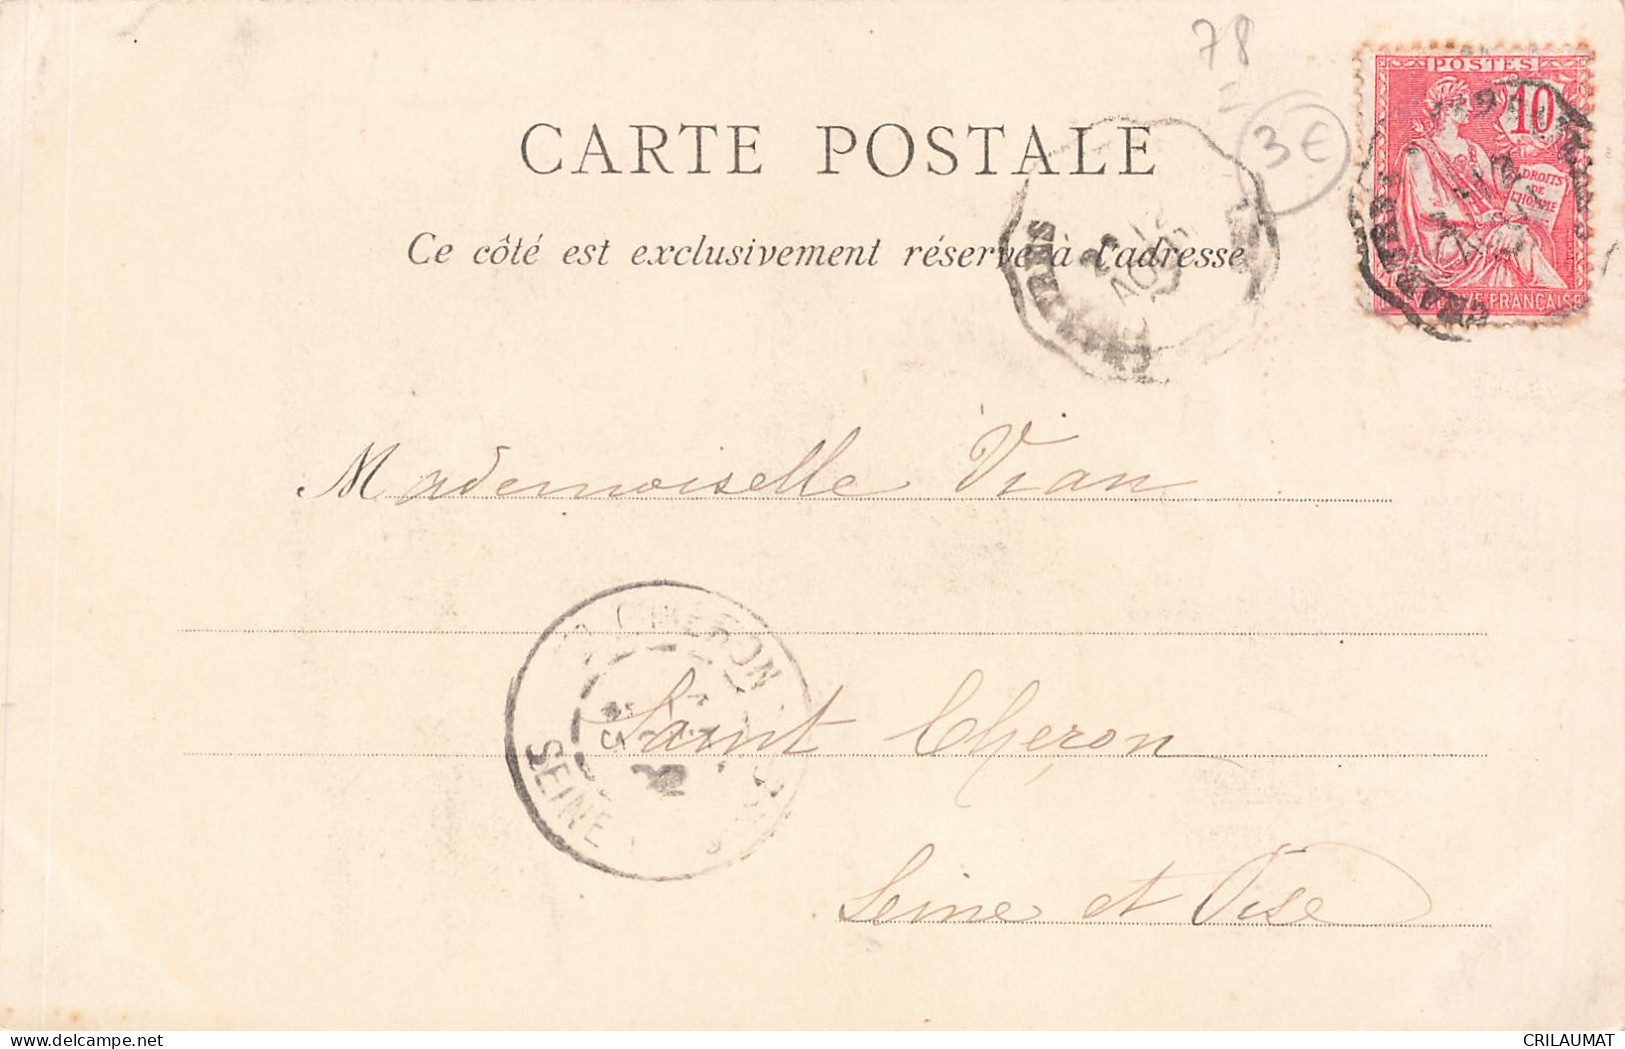 78
3€
POSTES
10
DROITS
DE
L'HOMME
FRANÇAISE
CARTE POSTALE
Ce côté est exclusivement réservé à l'adresse
AOUT
Mademoiselle Vian
Saint Cheron
SEINE
Seine et Oise
delcampe.net
CRILAUMAT